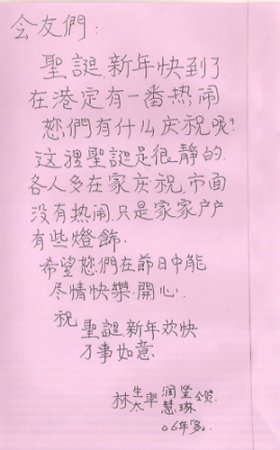 会友們:
聖誕,新年快到了.
在港定有一番热闹
您們有什么庆祝呢?
这裡聖誕是很静的.
各人多在家庆祝,市面
没有热闹,只是家家户户
有些燈飾.
希望您們在節日中能
尽情快樂.開心.
祝
聖誕新年欢快
万事如意.
林生太率润莹慧琳
06年